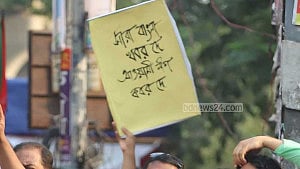 সারা বাংলা
খবর দে
আওয়ামী লীগ
কবর দে
bdnews24.com